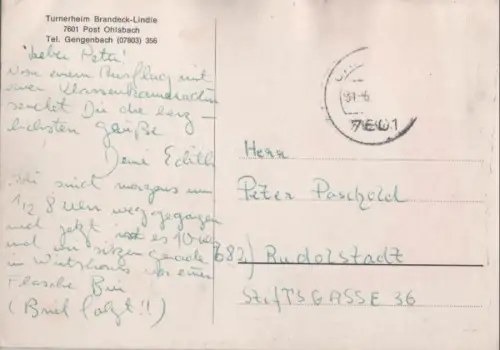 Turnerheim Brandeck-Lindle
7601 Post Ohlsbach
Tel. Gengenbach (07803) 356
Lieber Peter!
Von einem Ausflug mit
einer Klassenkameradin
sendet Dir die herz-
lichsten Grüße
Deine Edith
! Wir sind morgens um
1/2 8 Uhr weg gegangen
und jetzt ist es 10 Uhr
und wir sitzen gerade
im Wirtshaus vor einer
Flasche Bier
(Brief folgt!!)
7601
Herr
Peter Paschold
682) Rudolstadt
StifTSGASSE 36